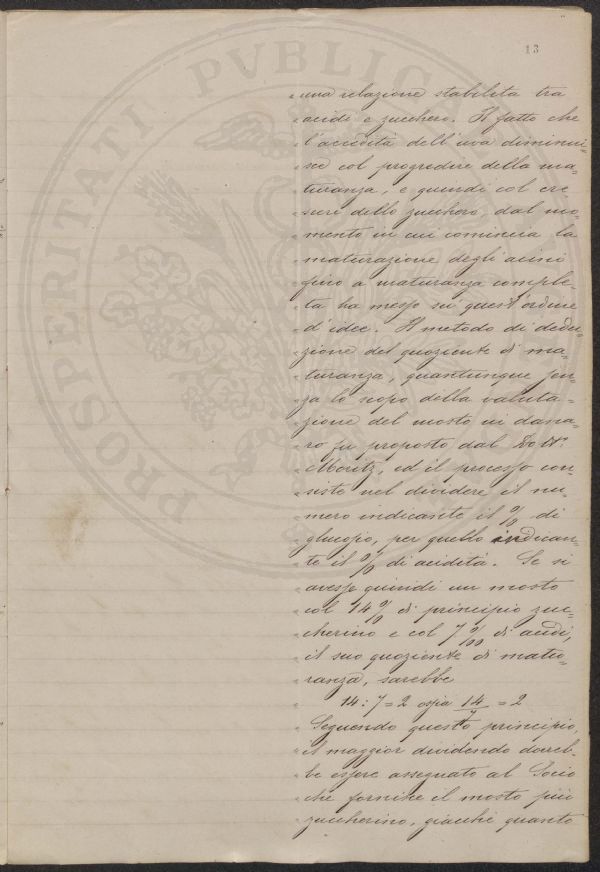 13
PROSPERITATI PVBLIC
„ una relazione stabilita tra
„ acidi e zucchero. Il fatto che
„ l'acidità dell'uva diminui=
„ sce col progredire della ma=
„ turanza, e quindi col cre
„ scere dello zucchero, dal mo=
„ mento in cui comincia la
„ maturazione degli acini
„ fino a maturanza comple=
„ ta ha messo su quest'ordine
„ d'idee. Il metodo di dedu=
„ zione del quoziente di ma=
„ turanza, quantunque sen=
„ za lo scopo della valuta=
„ zione del mosto in dana=
„ ro fu proposto dal Dott.r
„ Moritz, ed il processo con=
„ siste nel dividere il nu=
„ mero indicante il % di
„ glucosio, per quello indican=
„ te il % di acidità. Se si
„ avesse quindi un mosto
„ col 14 % di principio zuc=
„ cherino e col 7 ‰ di acidi,
„ il suo quoziente di matu=
„ ranza, sarebbe
„ 14 : 7 = 2 ossia 14/7 = 2
„ Seguendo questo principio,
„ il maggior dividendo dovreb=
„ be essere assegnato al Socio
„ che fornisce il mosto più
„ zuccherino, giacchè quanto